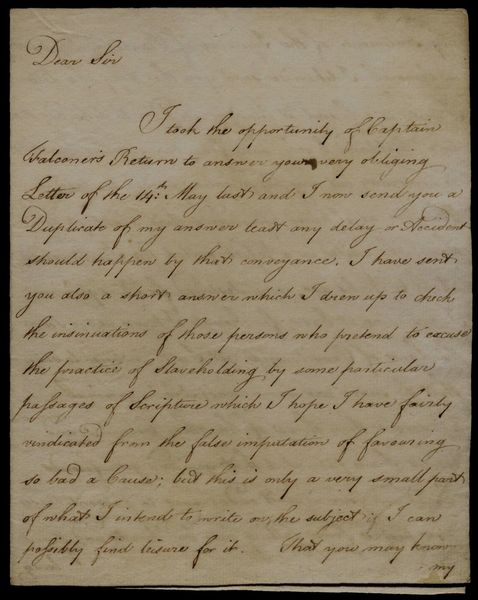 Dear Sir
I took the opportunity of Captain
Falconer's Return to answer your very obliging
Letter of the 14th. May last and I now send you a
Duplicate of my answer least any delay or Accident
should happen by that conveyance. I have sent
you also a short answer which I drew up to check
the insinuations of those persons who pretend to excuse
the practice of Slaveholding by some particular
passages of Scripture which I hope I have fairly
vindicated from the false imputation of favouring
so bad a Cause; but this is only a very small part
of what I intend to write on the subject if I can
possibly find leisure for it. That you may know
my